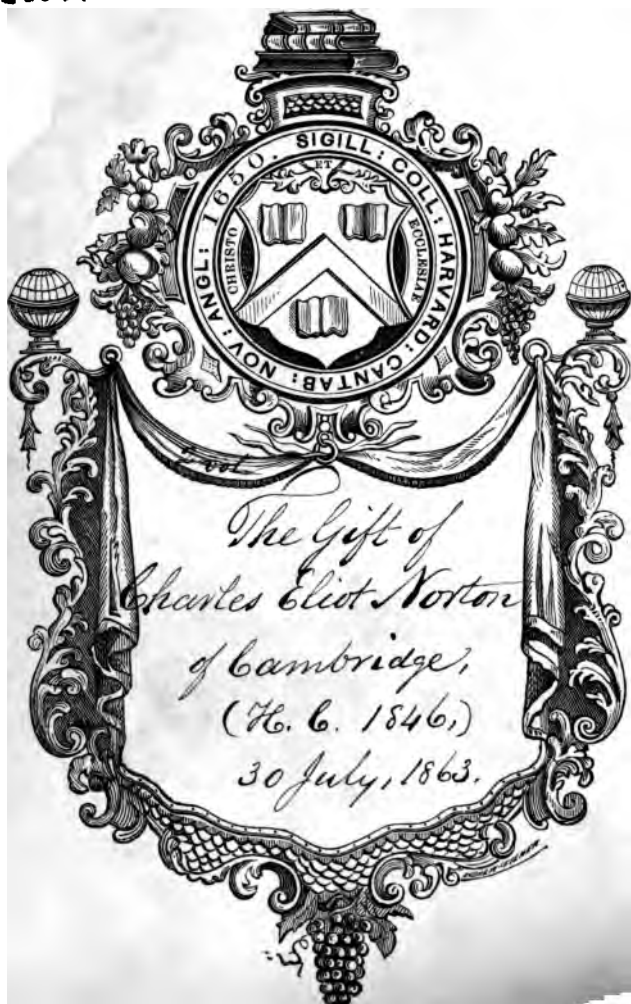 SIGILL: COLL: HARVARD: CANTAB: NOV: ANGL: 1650.
CHRISTO
ET
ECCLESIAE
vol
The Gift of
Charles Eliot Norton
of Cambridge,
(H. C. 1846,)
30 July, 1863.